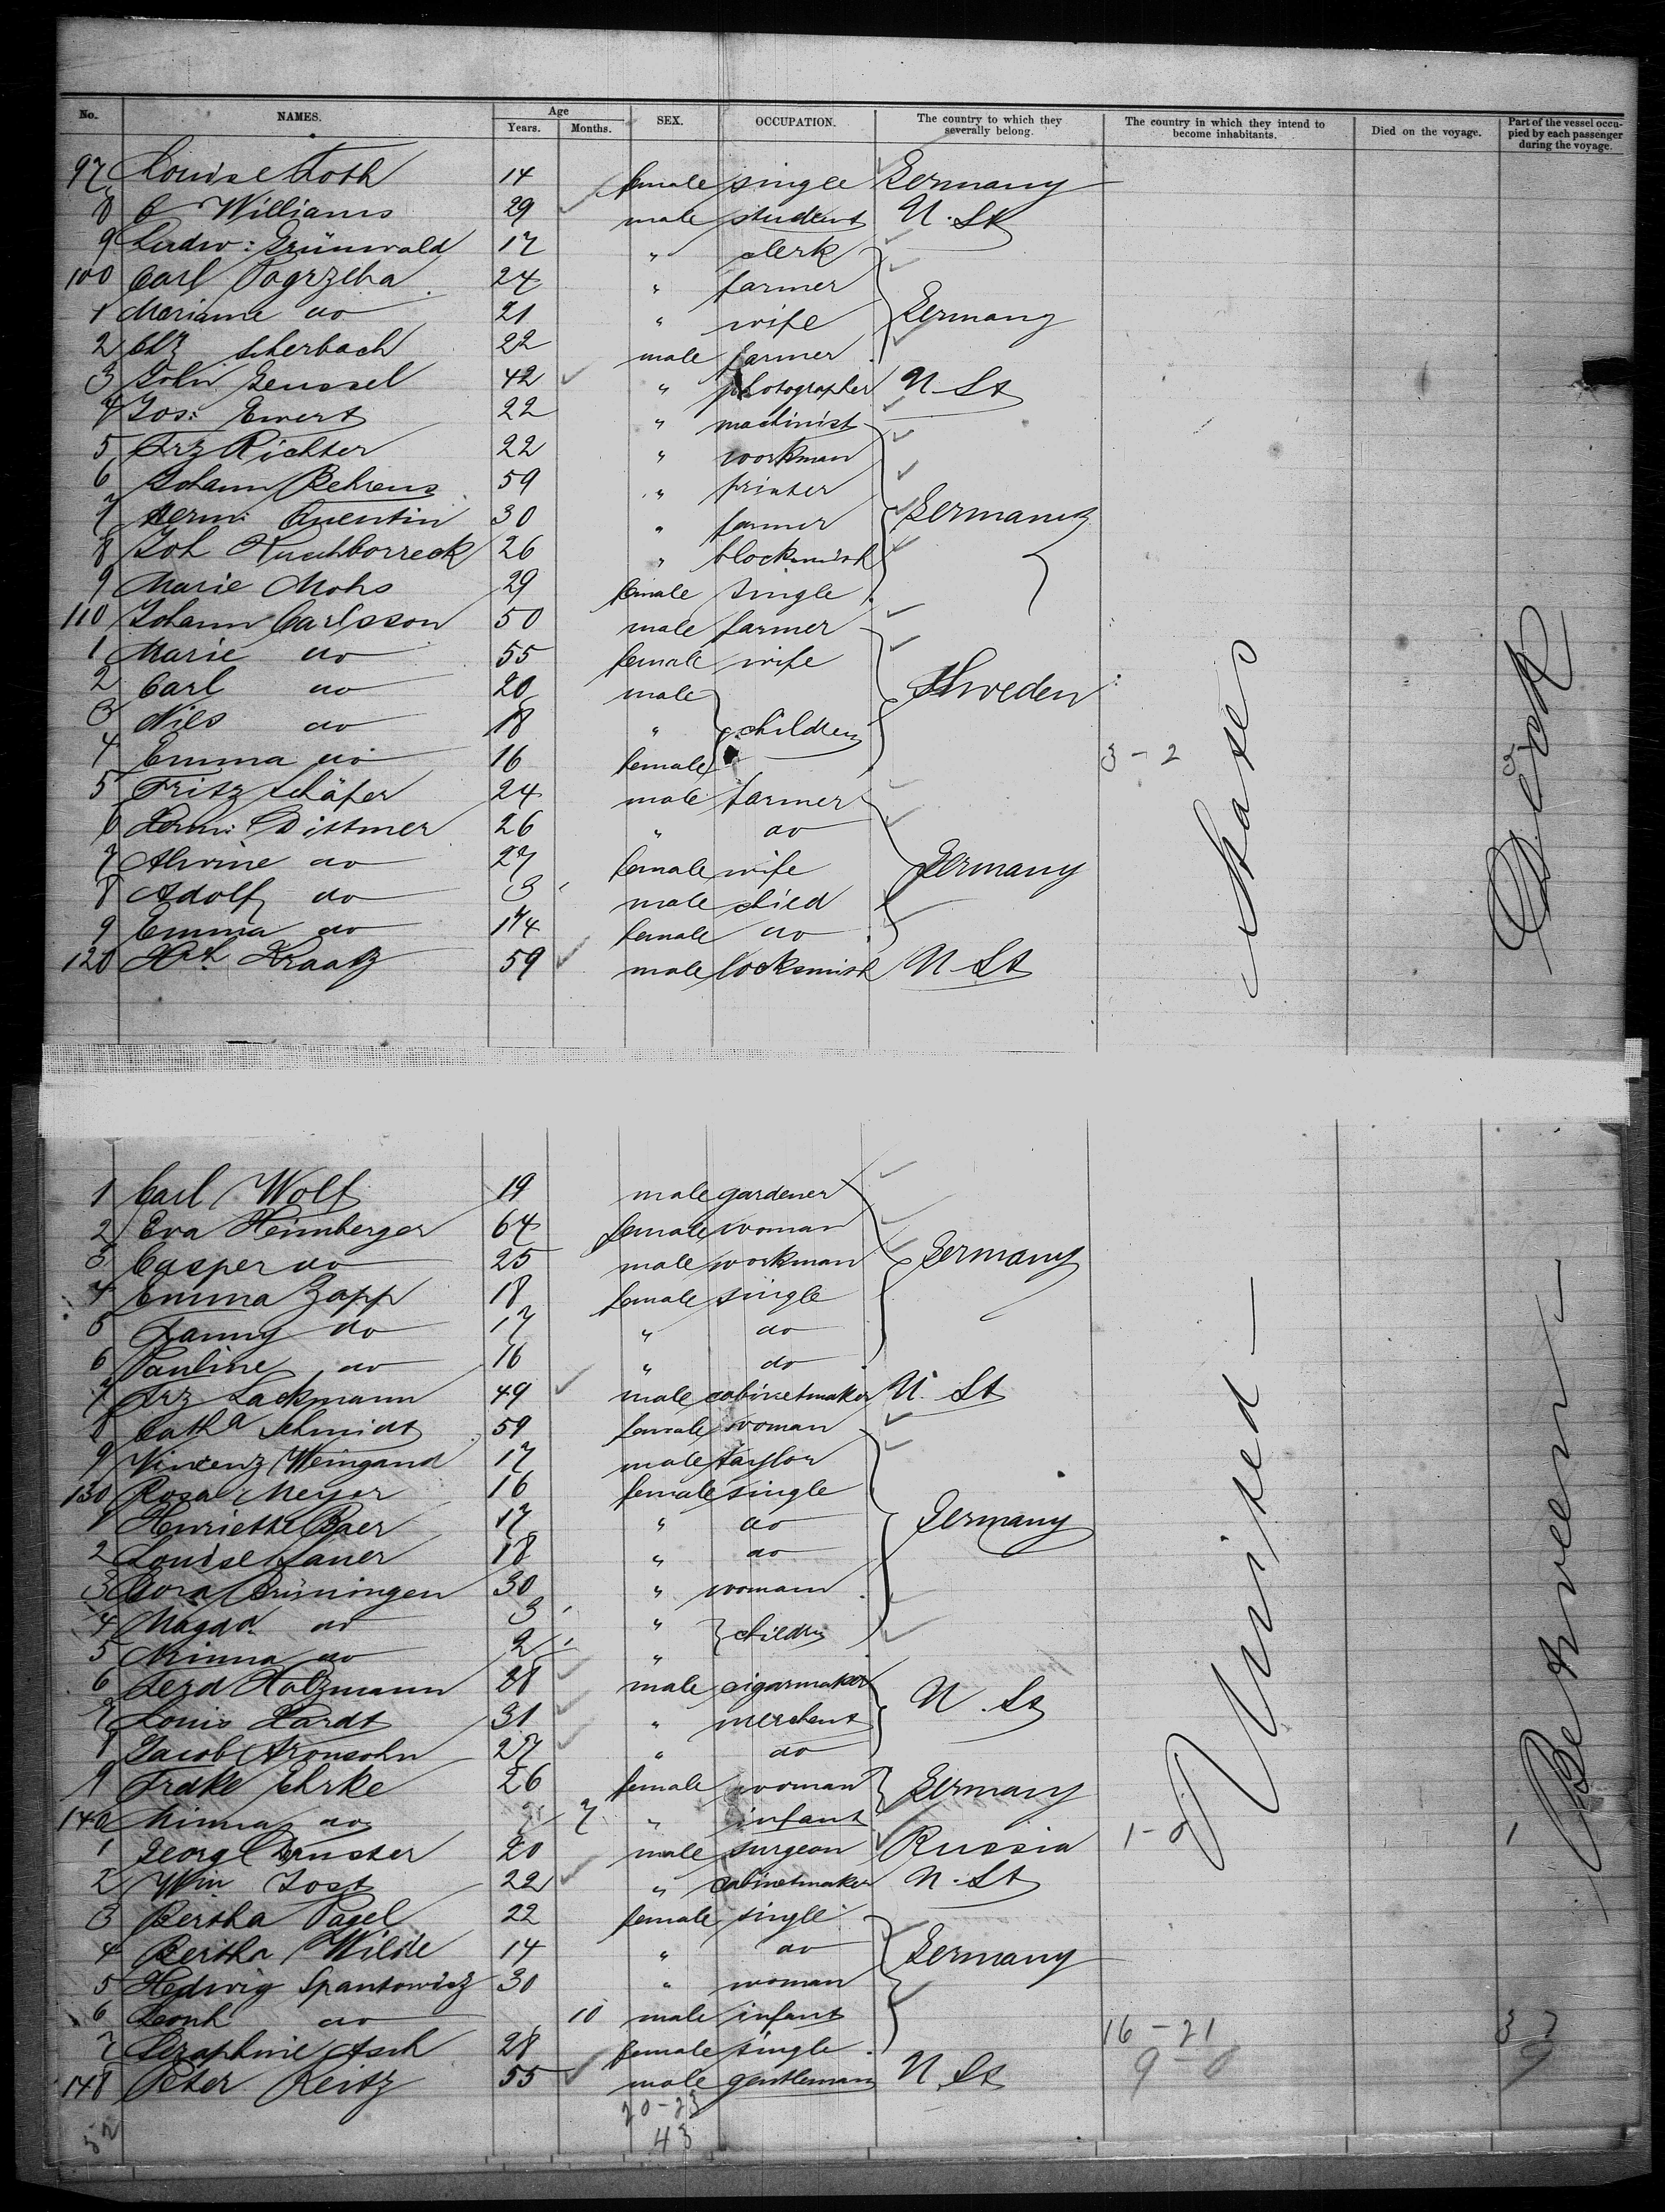 No. NAMES. Age Years. Months. SEX. OCCUPATION. The country to which they severally belong. The country in which they intend to become inhabitants. Died on the voyage. Part of the vessel occupied by each passenger during the voyage.
97 Louise Noth 14 female single Germany
8 C Williams 29 male student U. St
9 Ludw: Grünwald 17 " clerk
100 Carl Pogrzeba 24 " farmer
1 Marianne do 21 " wife Germany
2 Scherbach 22 male farmer
3 John Geussel 42 " photographer U St
4 Jos: Ewert 22 " machinist
5 Frz Richter 22 " workman
6 Johann Behrens 59 " printer
7 Herm: Quentin 30 " farmer Germany
8 Joh 26 "
9 Marie Mohs 29 female single
110 Johann Carlsson 50 male farmer
1 Marie do 55 female wife
2 Carl do 20 male Sweden
3 Nils do 18 " children
4 Emma do 16 female 3 - 2
5 Fritz Schäfer 24 male farmer
6 Herm: Dittmer 26 " do
7 Alwine do 27 female wife Germany
8 Adolf do 3 male child
9 Emma do 1 3/4 female do
120 Kraatz 59 male locksmith U St
1 Carl Wolf 19 male gardener
2 Eva Heimberger 64 female woman
3 Casper do 25 male workman Germany
4 Emma Zapp 18 female single
5 Fanny do 17 " do
6 Pauline do 16 " do
7 Frz Lackmann 49 male cabinetmaker U. St
8 Catha Schmidt 59 female woman
9 Vincenz Weingand 17 male taylor
130 Rosa Meyer 16 female single
1 Henriette Baer 17 " do Germany
2 Louise Sauer 18 " do
3 Cora Brüningen 30 " woman
4 Magda. do 3 " children
5 Minna do 2 "
6 Ferd Holzmann 28 male cigarmaker
7 Louis Hardt 31 " merchent U. St
8 Jacob Aronsohn 27 " do
9 Fredke Ehrke 26 female woman Germany
140 Minna do 7 " infant
1 Georg 20 male surgeon Russia 1 - 0 1
2 Wm Jost 22 " cabinetmaker U. St
3 Bertha Pagel 22 female single
4 Bertha Wilde 14 " do Germany
5 Hedwig Spantowicz 30 " woman
6 do 10 male infant
7 Seraphine Asch 28 female single 16 - 21
148 Peter Reitz 55 male gentleman U St 9 - 0
20 - 23
43
United States
Between Deck